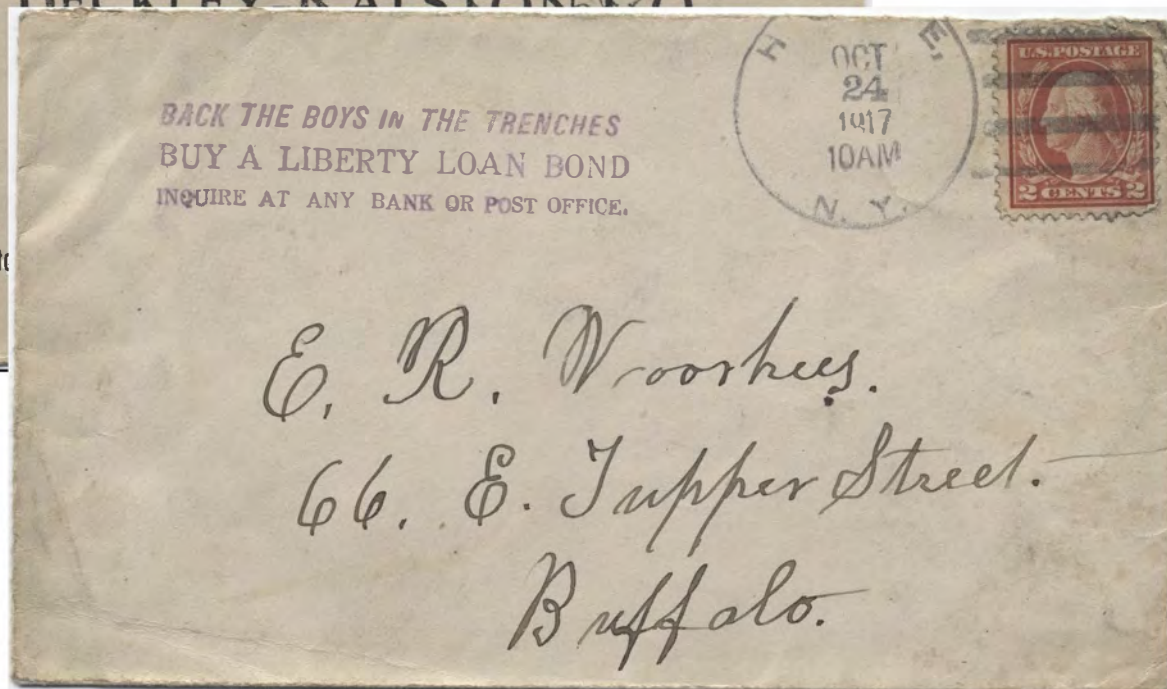 BACK THE BOYS IN THE TRENCHES
BUY A LIBERTY LOAN BOND
INQUIRE AT ANY BANK OR POST OFFICE.
OCT
24
1917
10AM
N. Y.
U.S. POSTAGE
2 CENTS 2
E. R. Voorhees.
66. E. Tupper Street.
Buffalo.